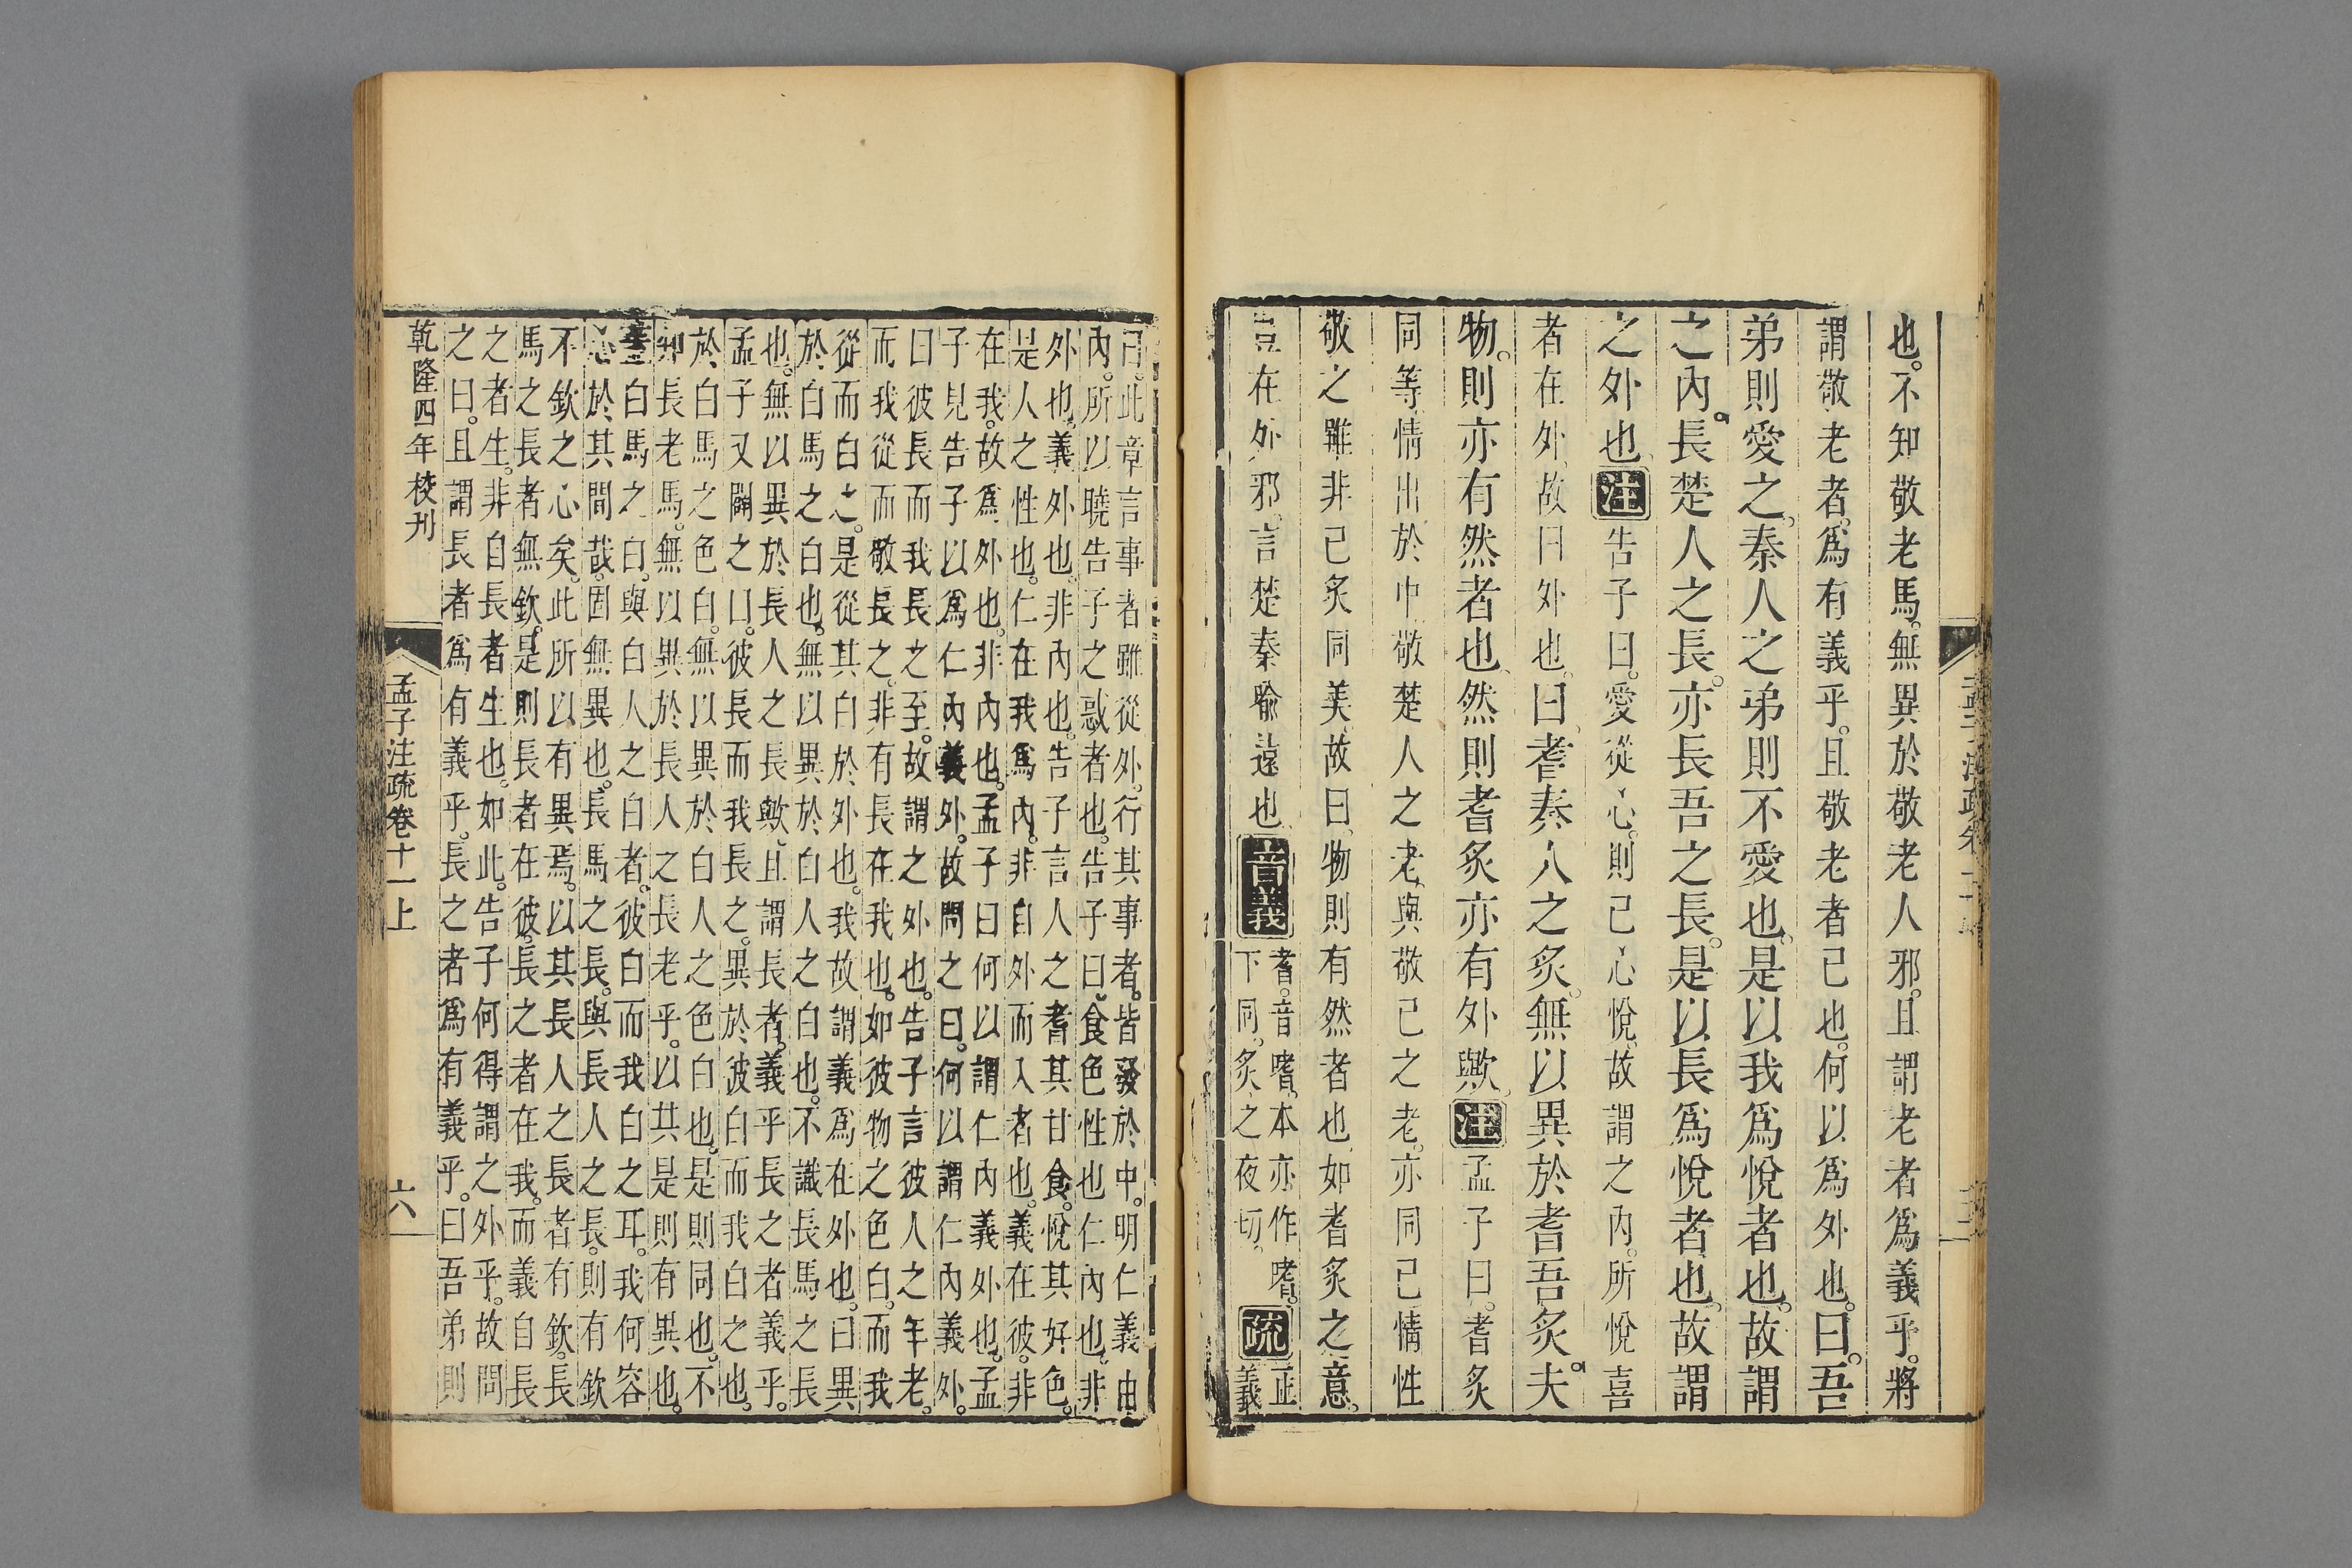 也。不知敬老馬。無異於敬老人邪。且謂老者爲義乎。將
謂敬老者。爲有義乎。且敬老者己也。何以爲外也。曰。吾
弟則愛之。秦人之弟則不愛也。是以我爲悅者也。故謂
之內。長楚人之長。亦長吾之長。是以長爲悅者也。故謂
之外也。注告子曰。愛從心。則己心悅。故謂之內。所悅喜
者在外。故曰外也。曰。耆秦人之炙。無以異於耆吾炙。夫
物。則亦有然者也。然則耆炙亦有外歟。注孟子曰。耆炙
同等。情出於中。敬楚人之老。與敬己之老。亦同己情性
敬之。雖非己炙。同美。故曰。物則有然者也。如耆炙之意。
豈在外邪。言楚秦喻遠也。音義
耆。音嗜。本亦作嗜。
下同。炙。之夜切。
疏
正
義
曰。此章言事者雖從外。行其事者。皆發於中。明仁義由
內。所以曉告子之惑者也。告子曰。食色性也仁內也。非
外也。義外也。非內也。告子言人之耆其甘食。悅其好色。
是人之性也。仁在我爲內。非自外而入者也。義在彼。非
在我。故爲外也。非內也。孟子曰何以謂仁內義外也。孟
子見告子以爲仁內義外。故問之曰。何以謂仁內義外。
曰彼長而我長之至。故謂之外也。告子言彼人之年老。
而我從而敬長之。非有長在我也。如彼物之色白。而我
從而白之。是從其白於外也。我故謂義爲在外也。曰異
於白馬之白也。無以異於白人之白也。不識長馬之長
也。無以異於長人之長歟。且謂長者。義乎長之者義乎。
孟子又闢之曰。彼長而我長之。異於彼白而我白之也。
於白馬之色白。無以異於白人之色白也。是則同也。不
知長老馬。無以異於長人之長老乎。以其是則有異也。
白馬之白。與白人之白者。彼白而我白之耳。我何容
心於其間哉。固無異也。長馬之長。與長人之長。則有欽
不欽之心矣。此所以有異焉。以其長人之長者有欽。長
馬之長者無欽。是則長者在彼。長之者在我。而義自長
之者生。非自長者生也。如此。告子何得謂之外乎。故問
之曰。且謂長者爲有義乎。長之者爲有義乎。曰吾弟則
乾隆四年校刊
孟子注疏卷十一上
六